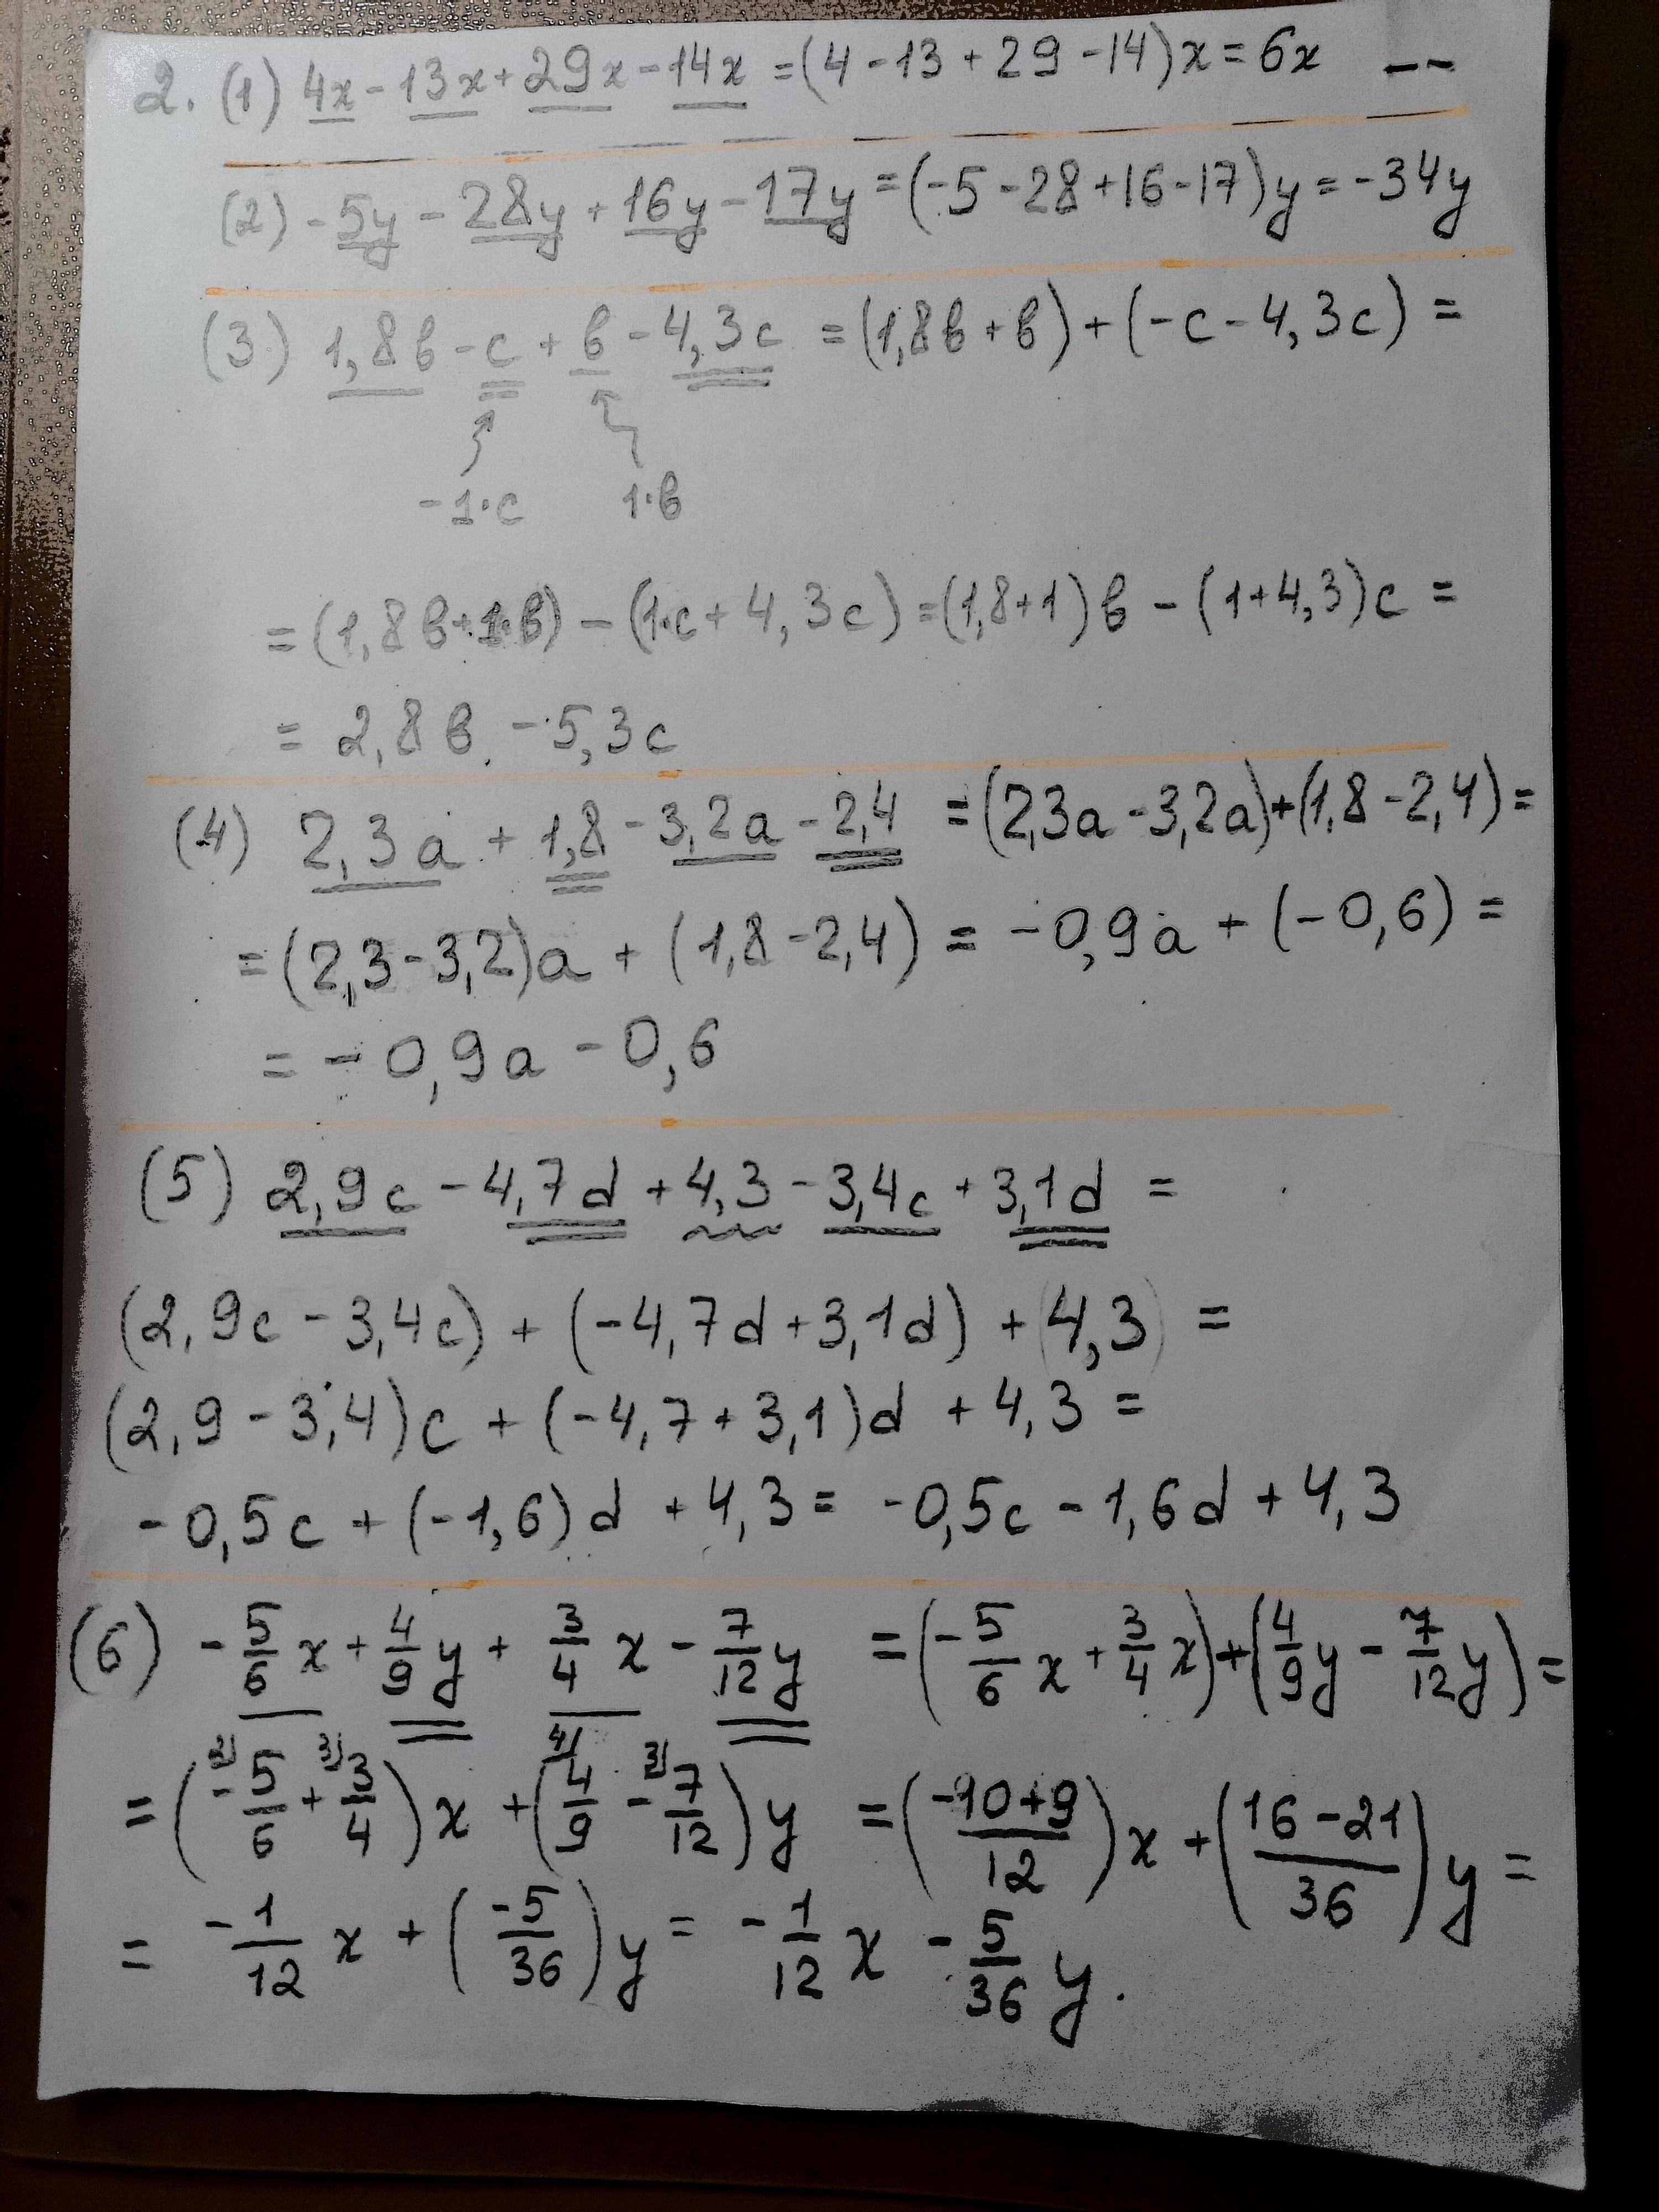 2. (1) 4x - 13x + 29x - 14x = (4 - 13 + 29 - 14)x = 6x --
(2) - 5y - 28y + 16y - 17y = (-5 - 28 + 16 - 17)y = -34y
(3) 1,8в - c + в - 4,3c = (1,8в + в) + (-c - 4,3c) =
-1·c 1·в
= (1,8в + 1·в) - (1·c + 4,3c) = (1,8+1)в - (1+4,3)c =
= 2,8в - 5,3c
(4) 2,3a + 1,8 - 3,2a - 2,4 = (2,3a - 3,2a) + (1,8 - 2,4) =
= (2,3 - 3,2)a + (1,8 - 2,4) = -0,9a + (-0,6) =
= -0,9a - 0,6
(5) 2,9c - 4,7d + 4,3 - 3,4c + 3,1d =
(2,9c - 3,4c) + (-4,7d + 3,1d) + (4,3) =
(2,9 - 3,4)c + (-4,7 + 3,1)d + 4,3 =
-0,5c + (-1,6)d + 4,3 = -0,5c - 1,6d + 4,3
(6) - 5/6 x + 4/9 y + 3/4 x - 7/12 y = (- 5/6 x + 3/4 x) + (4/9 y - 7/12 y) =
= (2) - 5/6 + 3) 3/4) x + (4) 4/9 - 3) 7/12) y = ((-10+9)/12) x + ((16-21)/36) y =
= - 1/12 x + (-5/36) y = - 1/12 x - 5/36 y.